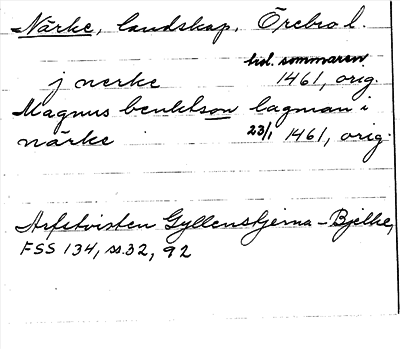 Närke, landskap, Örebro l.
tid. sommaren
j nerke 1461, orig.
Magnus benktson lagman i
närke 23/1 1461, orig.
Arfstvisten Gyllenstjerna-Bjelke,
FSS 134, ss. 32, 92